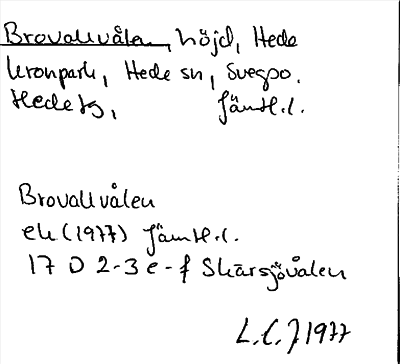 Brovallvålen, höjd, Hede
kronpark, Hede sn, Svegs po.
Hede tg, Jämtl. l.
Brovallvålen
ek (1977) Jämtl. l.
17 D 2-3 e-f Skärsjövålen
L.C.J 1977